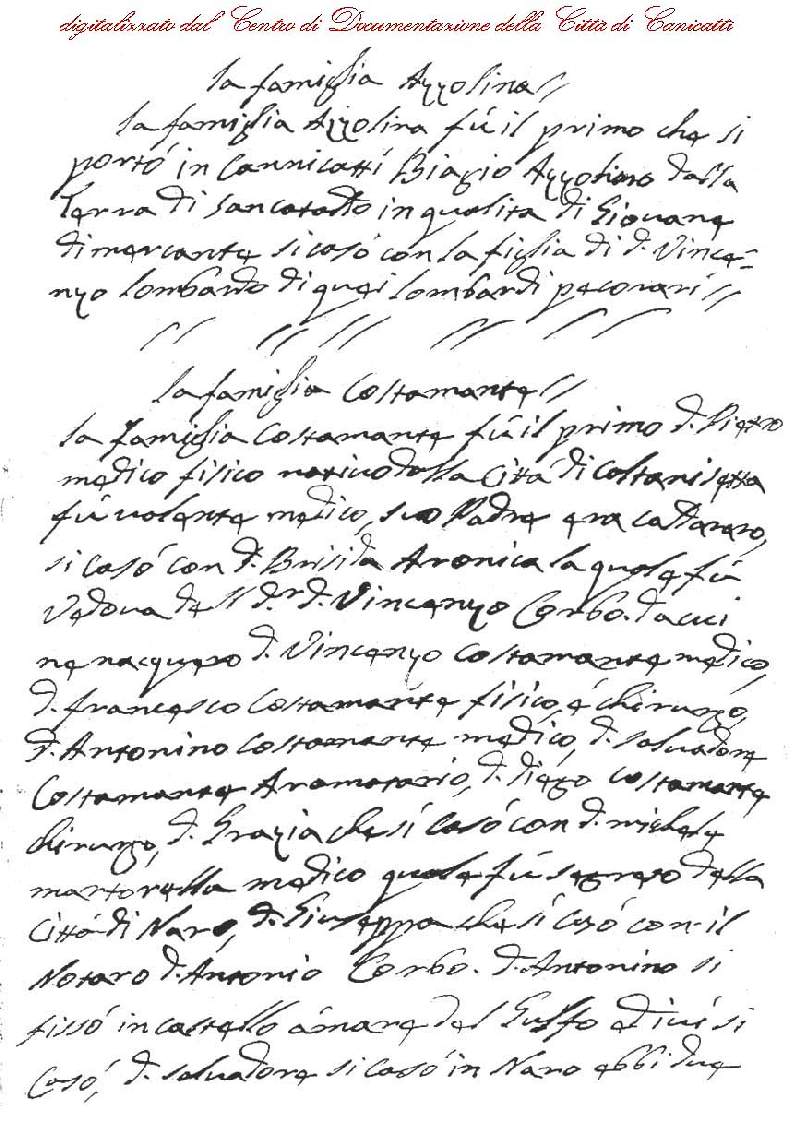 digitalizzato dal Centro di Documentazione della Città di Canicattì
la famiglia Azzolina//
la famiglia Azzolina fù il primo che si
portò in Cannicatti Biagio Azzolino dalla
Terra di Sancataldo in qualita di Giovane
di mercante si casò con la figlia di d. Vince=
nzo lombardo di quei lombardi pecorari//
// // // // //
la famiglia Costamante//
la famiglia Costamante fù il primo d. Pietro
medico fisico nativo dalla Città di Caltanisetta
fù valente medico, suo Padre era
si casò con d. Brisida Aronica la quale fù
Vedova dell d.r d. Vincenzo Corbo. da cui
ne nacquero d. Vincenzo Costamante medico,
d. francesco Costamante fisico, é chirurgo,
d. Antonino Costamante medico, d. Salvadore
Costamante Aromatario, d. Diego Costamante
chirurgo, d. Grazia che si casò con d. michele
martorella medico quale fù segreto della
Città di Naro, d. Giuseppa che si casò con il
Notaro d. Antonio Corbo. d. Antonino si
fissò in castello á mare del Gulfo ed ivi si
casò, d. Salvadore si casò in Naro ebbi due